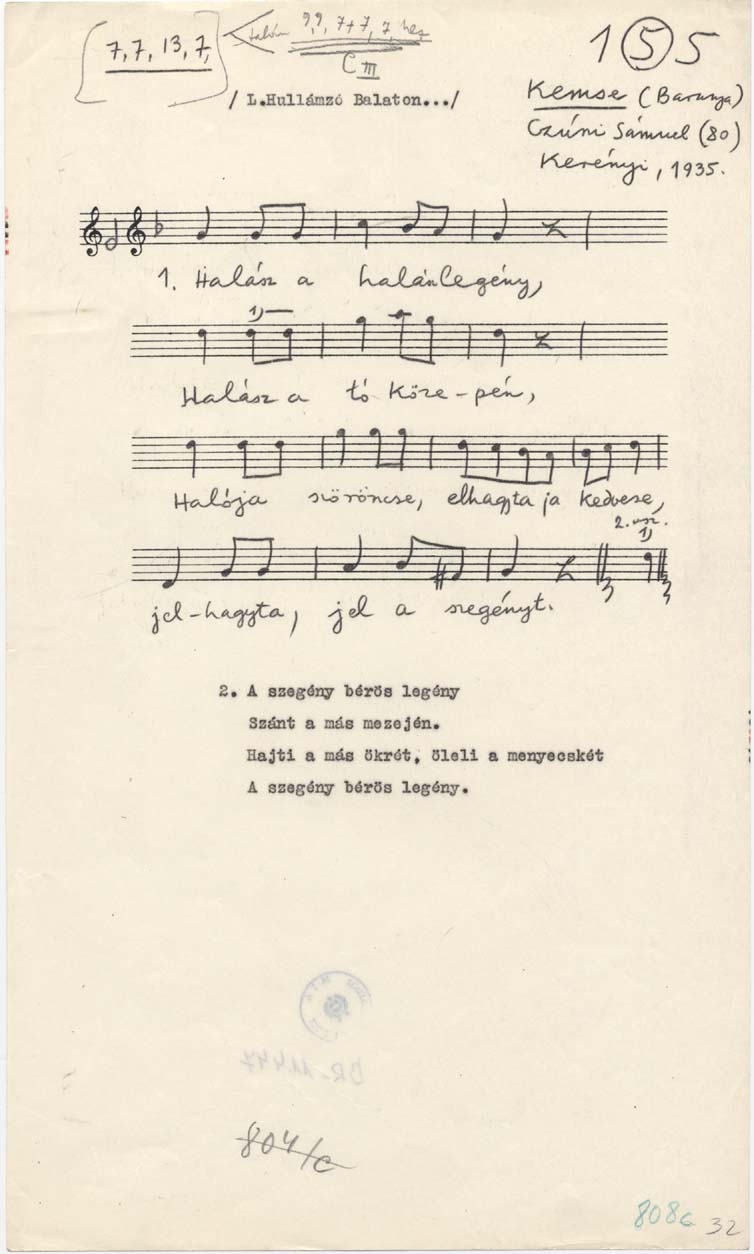 7, 7, 13, 7,
talán 7+7, 7, hez
C III
1 5 5
/ L.Hullámzó Balaton.../
Kemse (Baranya)
Czúni Sámuel (80)
Kerényi, 1935.
1. Halász a halászlegény,
1)
Halász a tó köze-pén,
Halója szöröncse, elhagyta ja kedvese,
2. vsz.
1)
jel-hagyta, jel a szegényt.
2. A szegény bérös legény
Szánt a más mezején.
Hajti a más ökrét, öleli a menyecskét
A szegény bérös legény.
804/c
808c 32